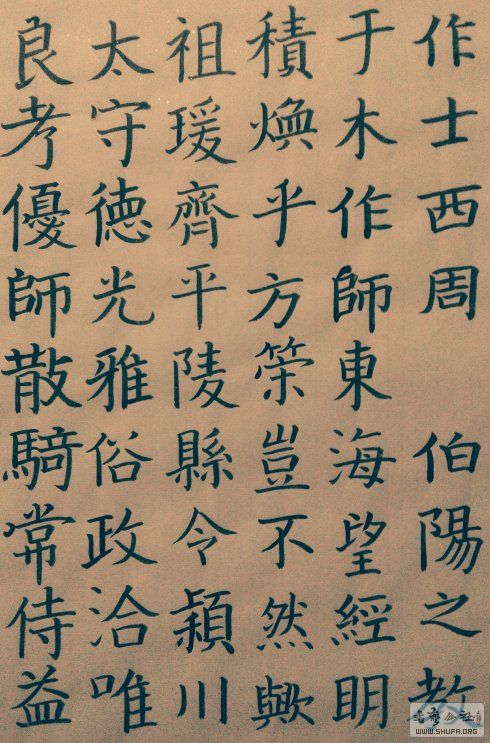 作士西周 伯陽之教
于木作師東海望經明
積煥乎方策豈不然歟
祖瑗齊平陵縣令潁川
太守德光雅俗政洽唯
良考優師散騎常侍益
WWW.SHUFA.ORG